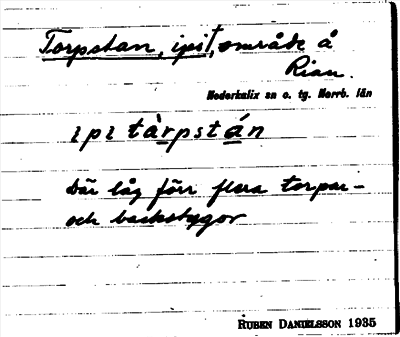 Torpstan, ipi†, område å
Rian.
Nederkalix sn o. tg. Norrb. län
ı p ı tàrpstán
Där låg förr flera torpar-
och backstugor
RUBEN DANIELSSON 1935